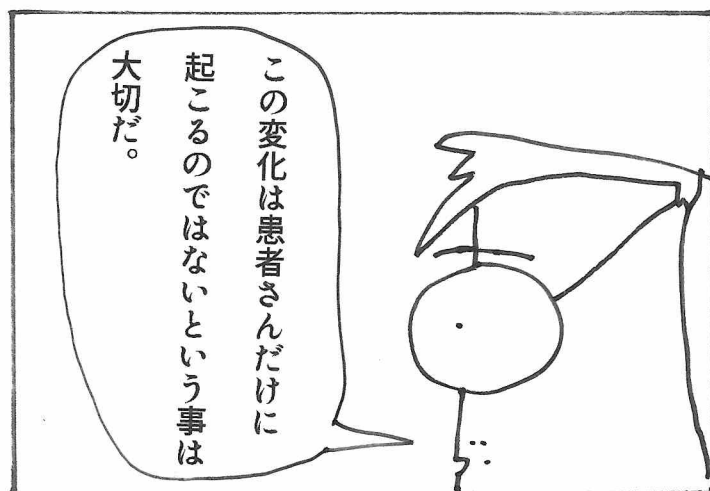 この変化は患者さんだけに
起こるのではないという事は
大切だ。